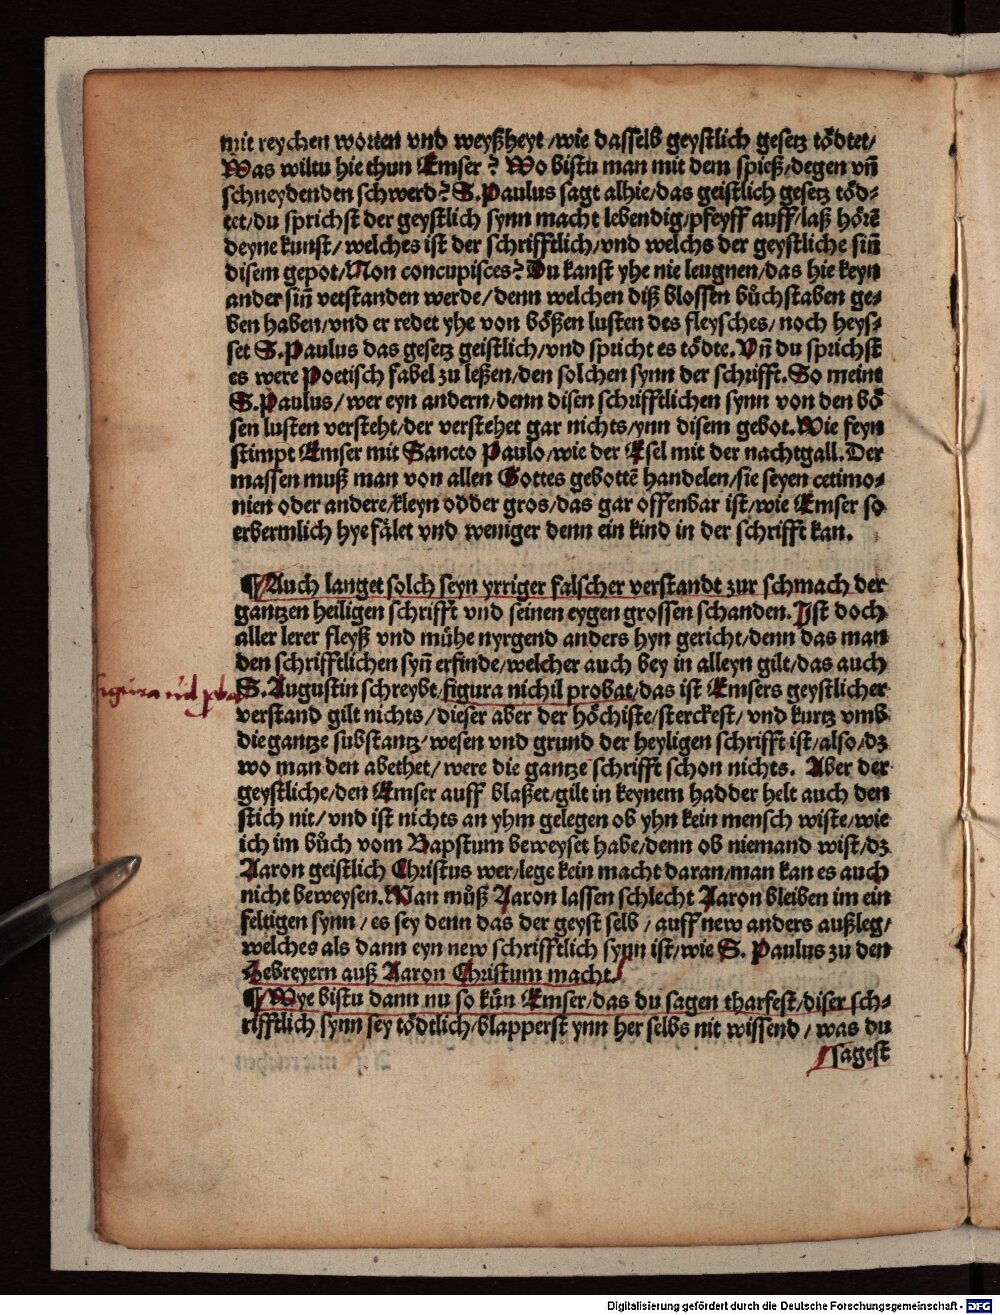 mit reychen worten vnd weyßheyt /wie dasselb geystlich gesetz tödtet/
Was wiltu hie thun Emser? Wo bistu man mit dem spieß/degen vn̄
schneydenden schwerd? S.Paulus sagt alhie/das geistlich gesetz töd⸗
tet/du sprichst der geystlich synn macht lebendig/pfeyff auff/laß hörē
deyne kunst/welches ist der schrifftlich/vnd welchs der geystliche sin̄
disem gepot/Non concupisces? Du kanst yhe nie leugnen/das hie keyn
ander sin̄ vetstanden werde/denn welchen diß blossen bůchstaben ge⸗
ben haben/vnd er redet yhe von bößen lusten des fleysches/noch heys⸗
set S.Paulus das gesetz geistlich/vnd spricht es tödte. Vn̄ du sprichst
es were Poetisch fabel zu leßen/den solchen synn der schrifft. So meint
S.Paulus/wer eyn andern/denn disen schrifftlichen synn von den bö
sen lusten versteht/der verstehet gar nichts/ynn disem gebot. Wie feyn
stimpt Emser mit Sancto Paulo/wie der Esel mit der nachtgall. Der
massen muß man von allen Gottes gebottē handelen/sie seyen cetimo⸗
nien oder andere/kleyn odder gros/das gar offenbar ist/wie Emser so
erbermlich hye fälet vnd weniger denn ein kind in der schrifft kan.
¶Auch langet solch seyn yrriger falscher verstandt zur schmach der
gantzen heiligen schrifft vnd seinen eygen grossen schanden. Ist doch
aller lerer fleyß vnd mühe nyrgend anders hyn gericht/denn das man
den schrifftlichen syn̄ erfinde/welcher auch bey in alleyn gilt/das auch
figura nil probat
S.Augustin schreybt/figura nichil probat/das ist Emsers geystlicher
verstand gilt nichts/dieser aber der höchiste/sterckest/vnd kurtz vmb
die gantze substantz/wesen vnd grund der heyligen schrifft ist/also/dz
wo man den abethet/were die gantze schrifft schon nichts. Aber der
geystliche/den Emser auff blaßet/gilt in keynem hadder helt auch den
stich nit/vnd ist nichts an yhm gelegen ob yhn kein mensch wiste/wie
ich im bůch vom Bapstum beweyset habe/denn ob niemand wist/dz
Aaron geistlich Christus wer/lege kein macht daran/man kan es auch
nicht beweysen. Man můß Aaron lassen schlecht Aaron bleiben im ein
feltigen synn/es sey denn das der geyst selb/auff new anders außleg/
welches als dann eyn new schrifftlich synn ist/wie S. Paulus zu den
Hebreyern auß Aaron Christum macht.
¶Wye bistu dann nu so kün Emser/das du sagen tharfest/diser sch⸗
rifftlich synn sey tödtlich/blapperst ynn her selbs nit wissend/was du
sagest
Digitalisierung gefördert durch die Deutsche Forschungsgemeinschaft - DFG